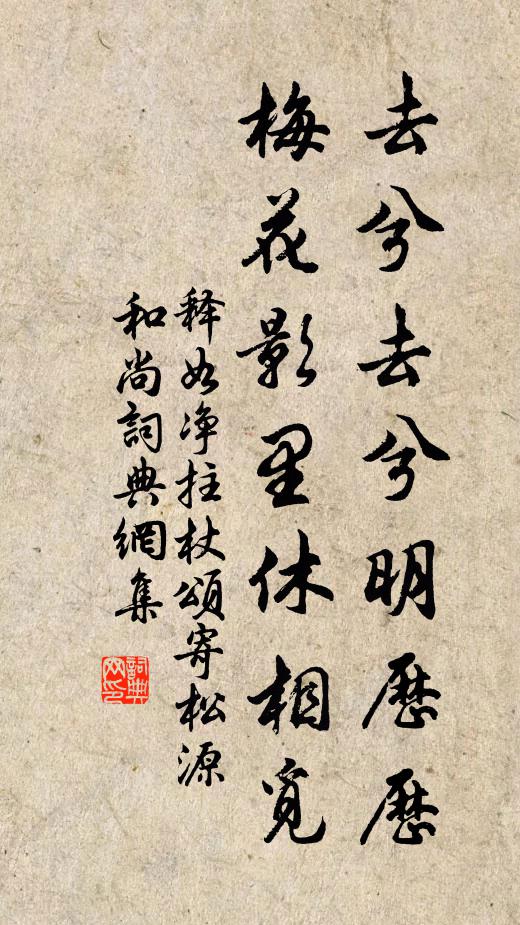 去兮去兮明歷歷
梅花影里休相覓
释如净拄杖頌寄松源
和尚詞典網集
詞典网印